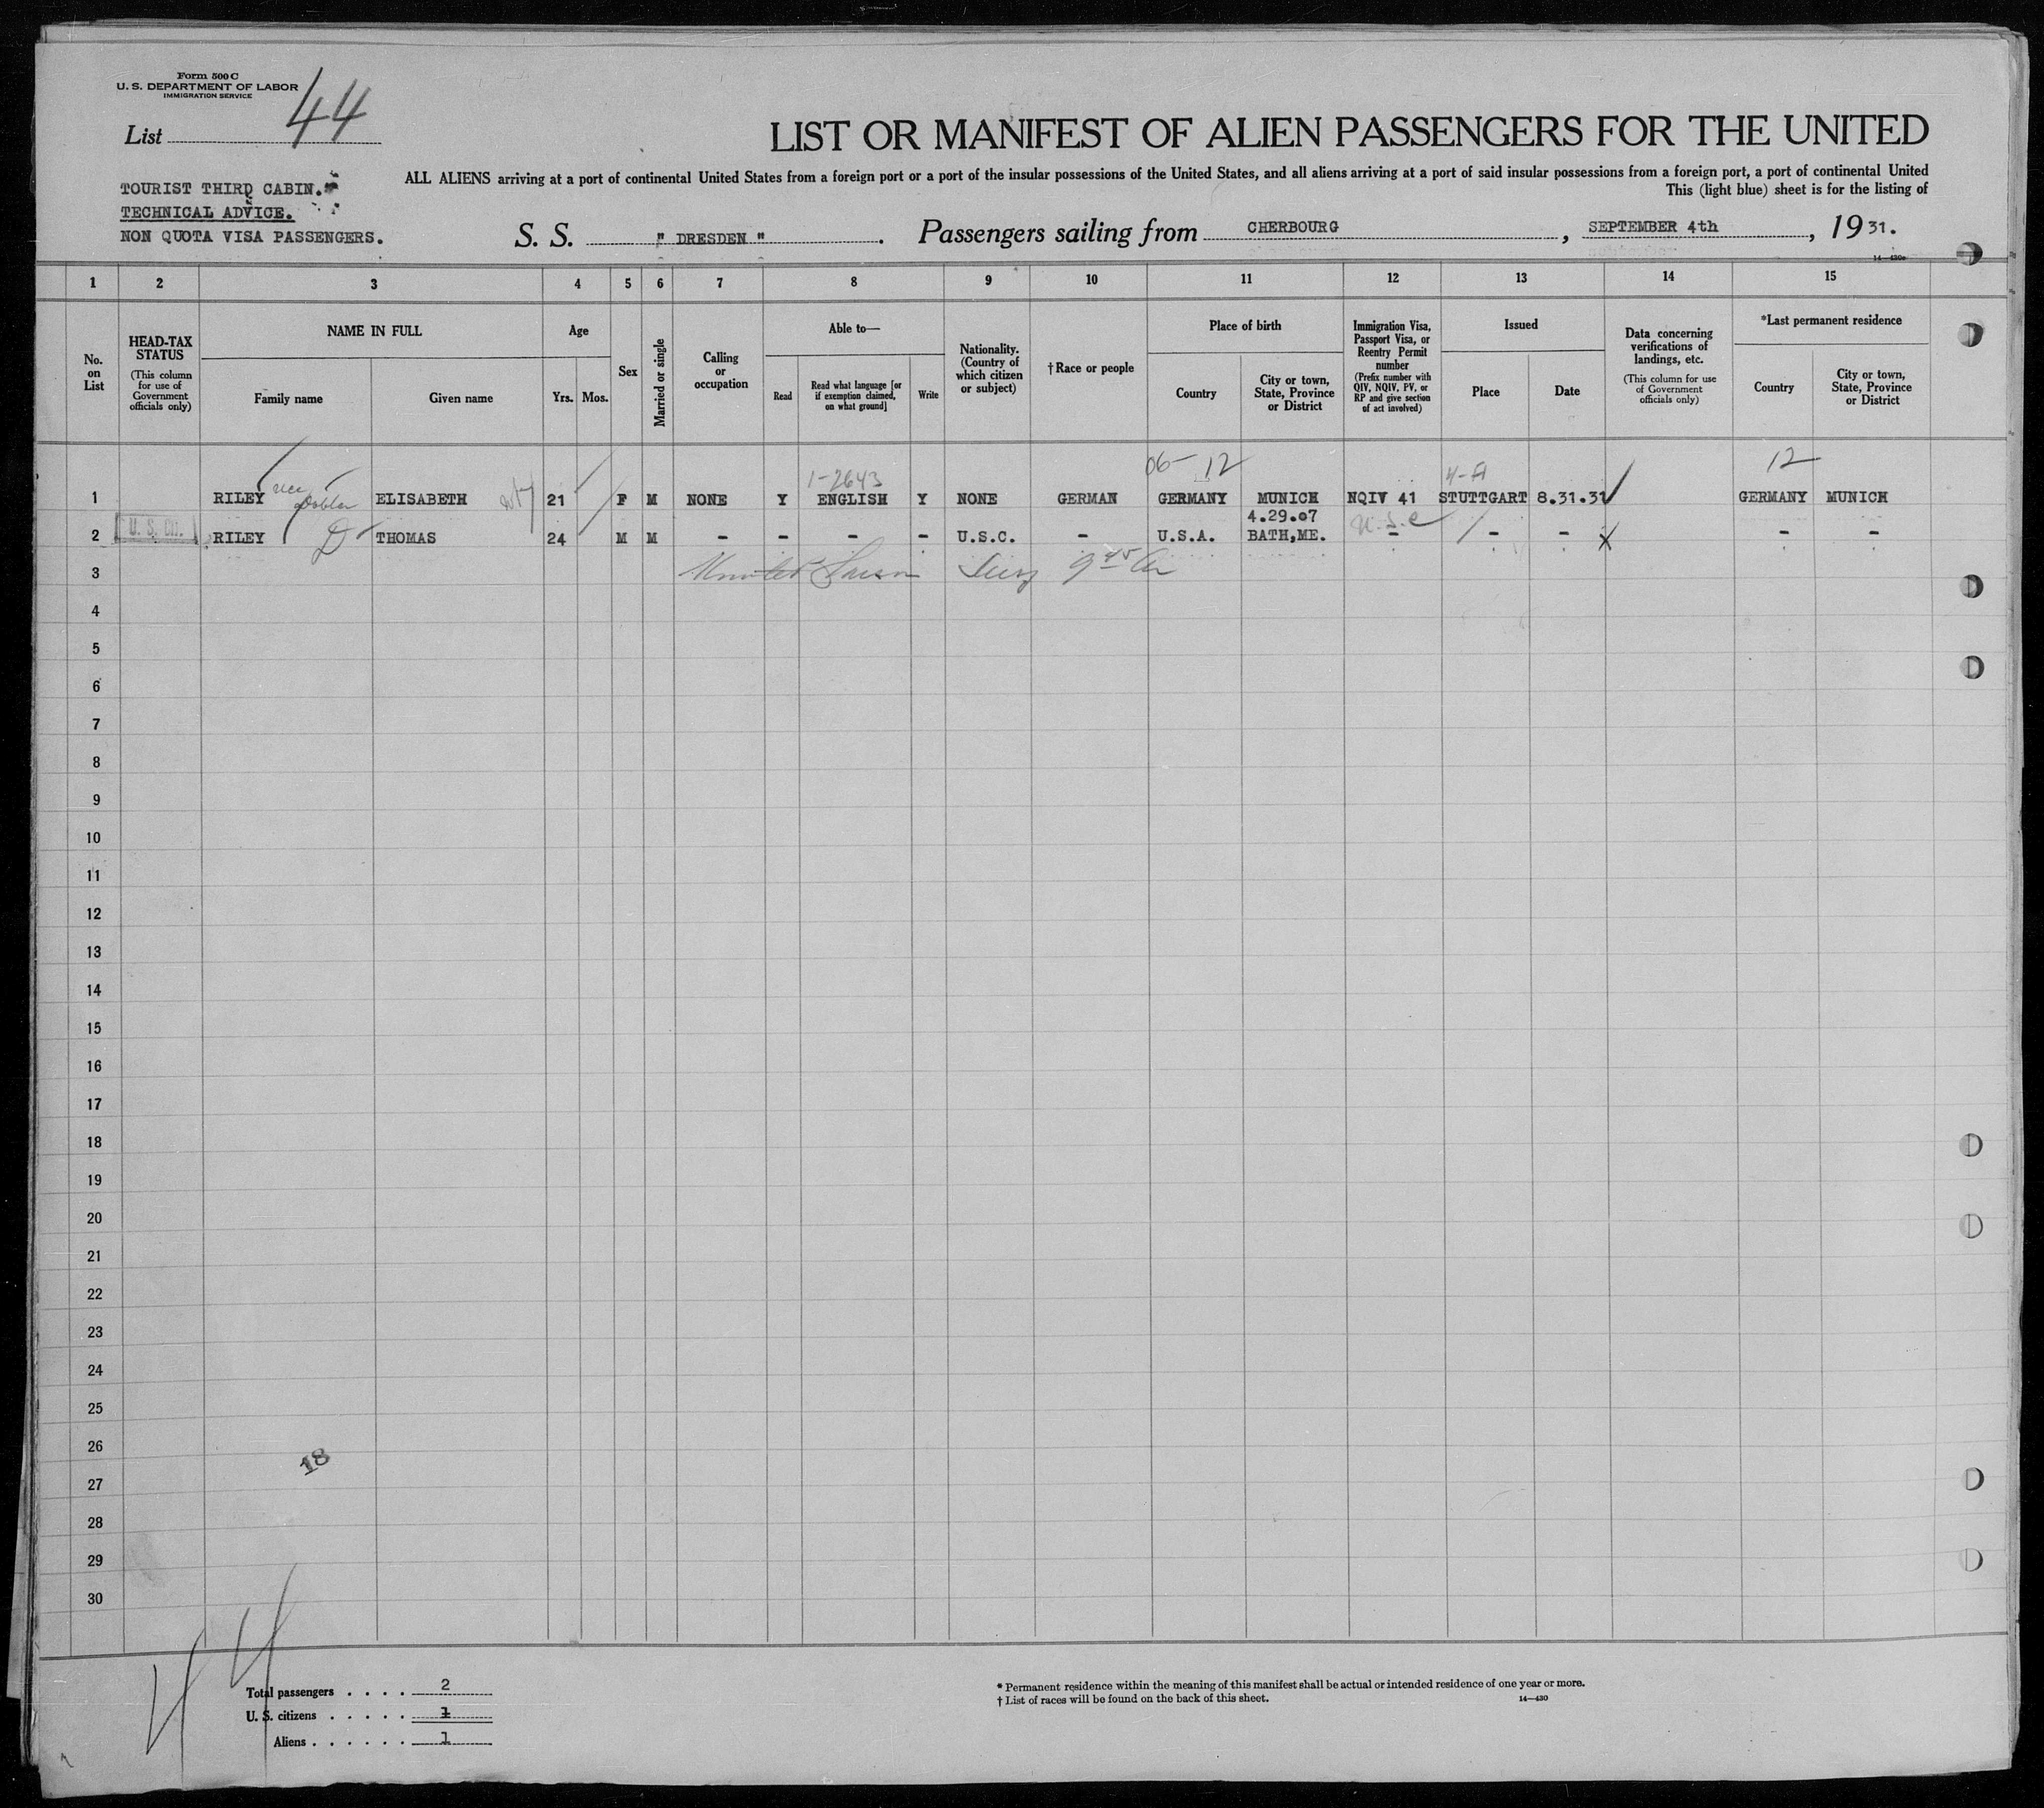 Form 500 C
U. S. DEPARTMENT OF LABOR
IMMIGRATION SERVICE
List 44
LIST OR MANIFEST OF ALIEN PASSENGERS FOR THE UNITED
ALL ALIENS arriving at a port of continental United States from a foreign port or a port of the insular possessions of the United States, and all aliens arriving at a port of said insular possessions from a foreign port, a port of continental United
This (light blue) sheet is for the listing of
TOURIST THIRD CABIN.
TECHNICAL ADVICE.
NON QUOTA VISA PASSENGERS.
S. S. " DRESDEN ". Passengers sailing from CHERBOURG, SEPTEMBER 4th, 1931.
14—430a
1 2 3 4 5 6 7 8 9 10 11 12 13 14 15
No. on List
HEAD-TAX STATUS
(This column for use of Government officials only)
NAME IN FULL
Family name
Given name
Age
Yrs.
Mos.
Sex
Married or single
Calling or occupation
Able to—
Read
Read what language [or if exemption claimed, on what ground]
Write
Nationality. (Country of which citizen or subject)
† Race or people
Place of birth
Country
City or town, State, Province or District
Immigration Visa, Passport Visa, or Reentry Permit number
(Prefix number with QIV, NQIV, PV, or RP and give section of act involved)
Issued
Place
Date
Data concerning verifications of landings, etc.
(This column for use of Government officials only)
*Last permanent residence
Country
City or town, State, Province or District
1-2643 06- 12 4-A 12
1 RILEY nee ELISABETH 21 F M NONE Y ENGLISH Y NONE GERMAN GERMANY MUNICH NQIV 41 STUTTGART 8.31.31 GERMANY MUNICH
4.29.07
2 U. S. Cit. RILEY D THOMAS 24 M M - - - - U.S.C. - U.S.A. BATH,ME. U.S.C - - - - -
3
4
5
6
7
8
9
10
11
12
13
14
15
16
17
18
19
20
21
22
23
24
25
26
18
27
28
29
30
44
Total passengers . . . . 2
U. S. citizens . . . . . 1
Aliens . . . . . . 1
* Permanent residence within the meaning of this manifest shall be actual or intended residence of one year or more.
† List of races will be found on the back of this sheet.
14—430